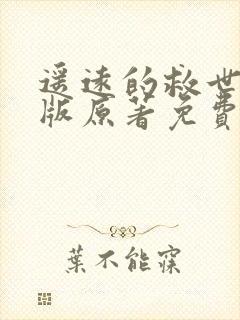 遥远的救世
版原著免費
葉不能寐